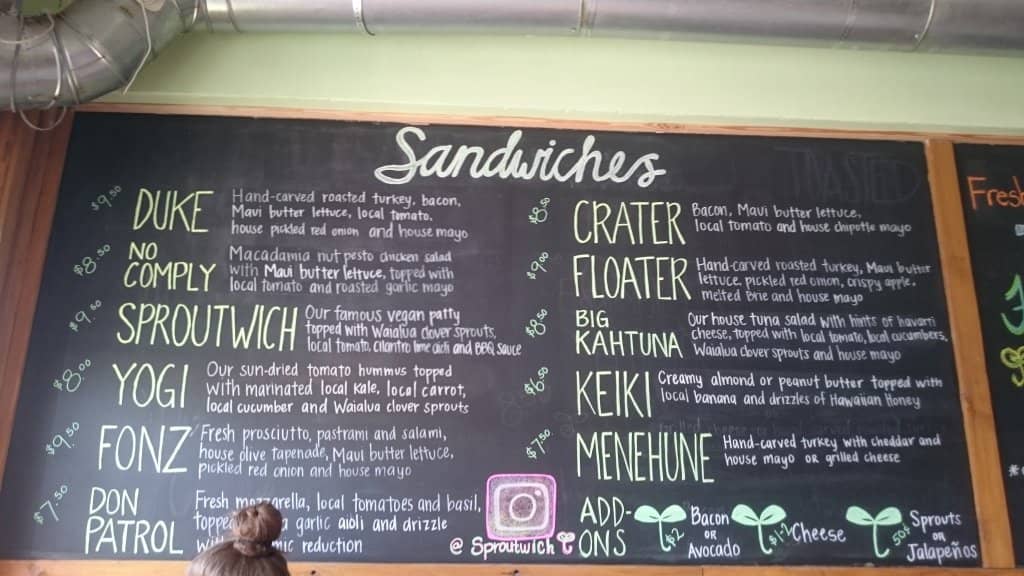 Sandwiches
TOASTED
$9.50
DUKE
Hand-carved roasted turkey, bacon,
Maui butter lettuce, local tomato,
house pickled red onion and house mayo
$8.50
NO
COMPLY
Macadamia nut pesto chicken salad
with Maui butter lettuce, topped with
local tomato and roasted garlic mayo
SPROUTWICH
Our famous vegan patty
topped with Waialua clover sprouts,
local tomato, cilantro lime aioli and BBQ sauce
$8.00
YOGI
Our sun-dried tomato hummus topped
with marinated local kale, local carrot,
local cucumber and Waialua clover sprouts
$9.50
FONZ
Fresh prosciutto, pastrami and salami,
house olive tapenade, Maui butter lettuce,
pickled red onion and house mayo
$7.50
DON
PATROL
Fresh mozzarella, local tomatoes and basil,
garlic aioli and drizzle
reduction
@ Sproutwich
$8.50
CRATER
Bacon, Maui butter lettuce,
local tomato and house chipotle mayo
$9.00
FLOATER
Hand-carved roasted turkey, Maui butter
lettuce, pickled red onion, crispy apple,
melted brie and house mayo
$8.50
BIG
KAHTUNA
Our house tuna salad with hints of havarti
cheese, topped with local tomato, local cucumbers,
Waialua clover sprouts and house mayo
$6.50
KEIKI
Creamy almond or peanut butter topped with
local banana and drizzles of Hawaiian Honey
$7.50
MENEHUNE
Hand-carved turkey with cheddar and
house mayo or grilled cheese
ADD-
ONS
$2
Bacon
or
Avocado
Cheese
50¢
Sprouts
or
Jalapeños
Fresh